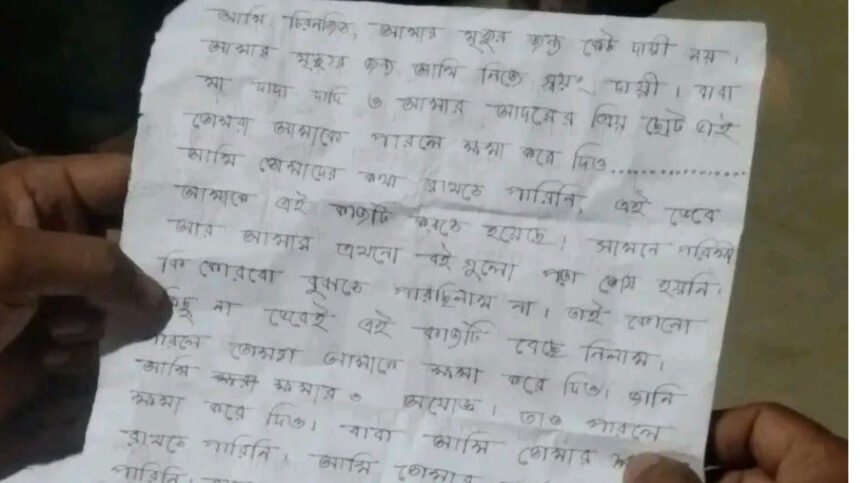 আমি চিরনজিত, আমার মৃত্যুর জন্য কেউ দায়ী নয়।
আমার মৃত্যুর জন্য আমি নিজে স্বয়ং দায়ী। বাবা
মা দাদা দাদি ও আমার আদরের প্রিয় ছোট ভাই
তোমরা আমাকে পারলে ক্ষমা করে দিও..............
আমি তোমাদের কথা রাখতে পারিনি, এই ভেবে
আমাকে এই কাজটি করতে হয়েছে। সামনে পরিক্ষা
আর আমার এখনো বই গুলো পড়া শেষ হয়নি।
কি কোরবো বুঝতে পারছিলাম না। তাই কোনো
কিছু না ভেবেই এই কাজটি বেছে নিলাম।
পারলে তোমরা আমাকে ক্ষমা করে দিও। জানি
আমি ক্ষমার ও অযোগ্য। তাও পারলে
ক্ষমা করে দিও। বাবা আমি তোমার
রাখতে পারিনি। আমি তোমার
পারিনি।